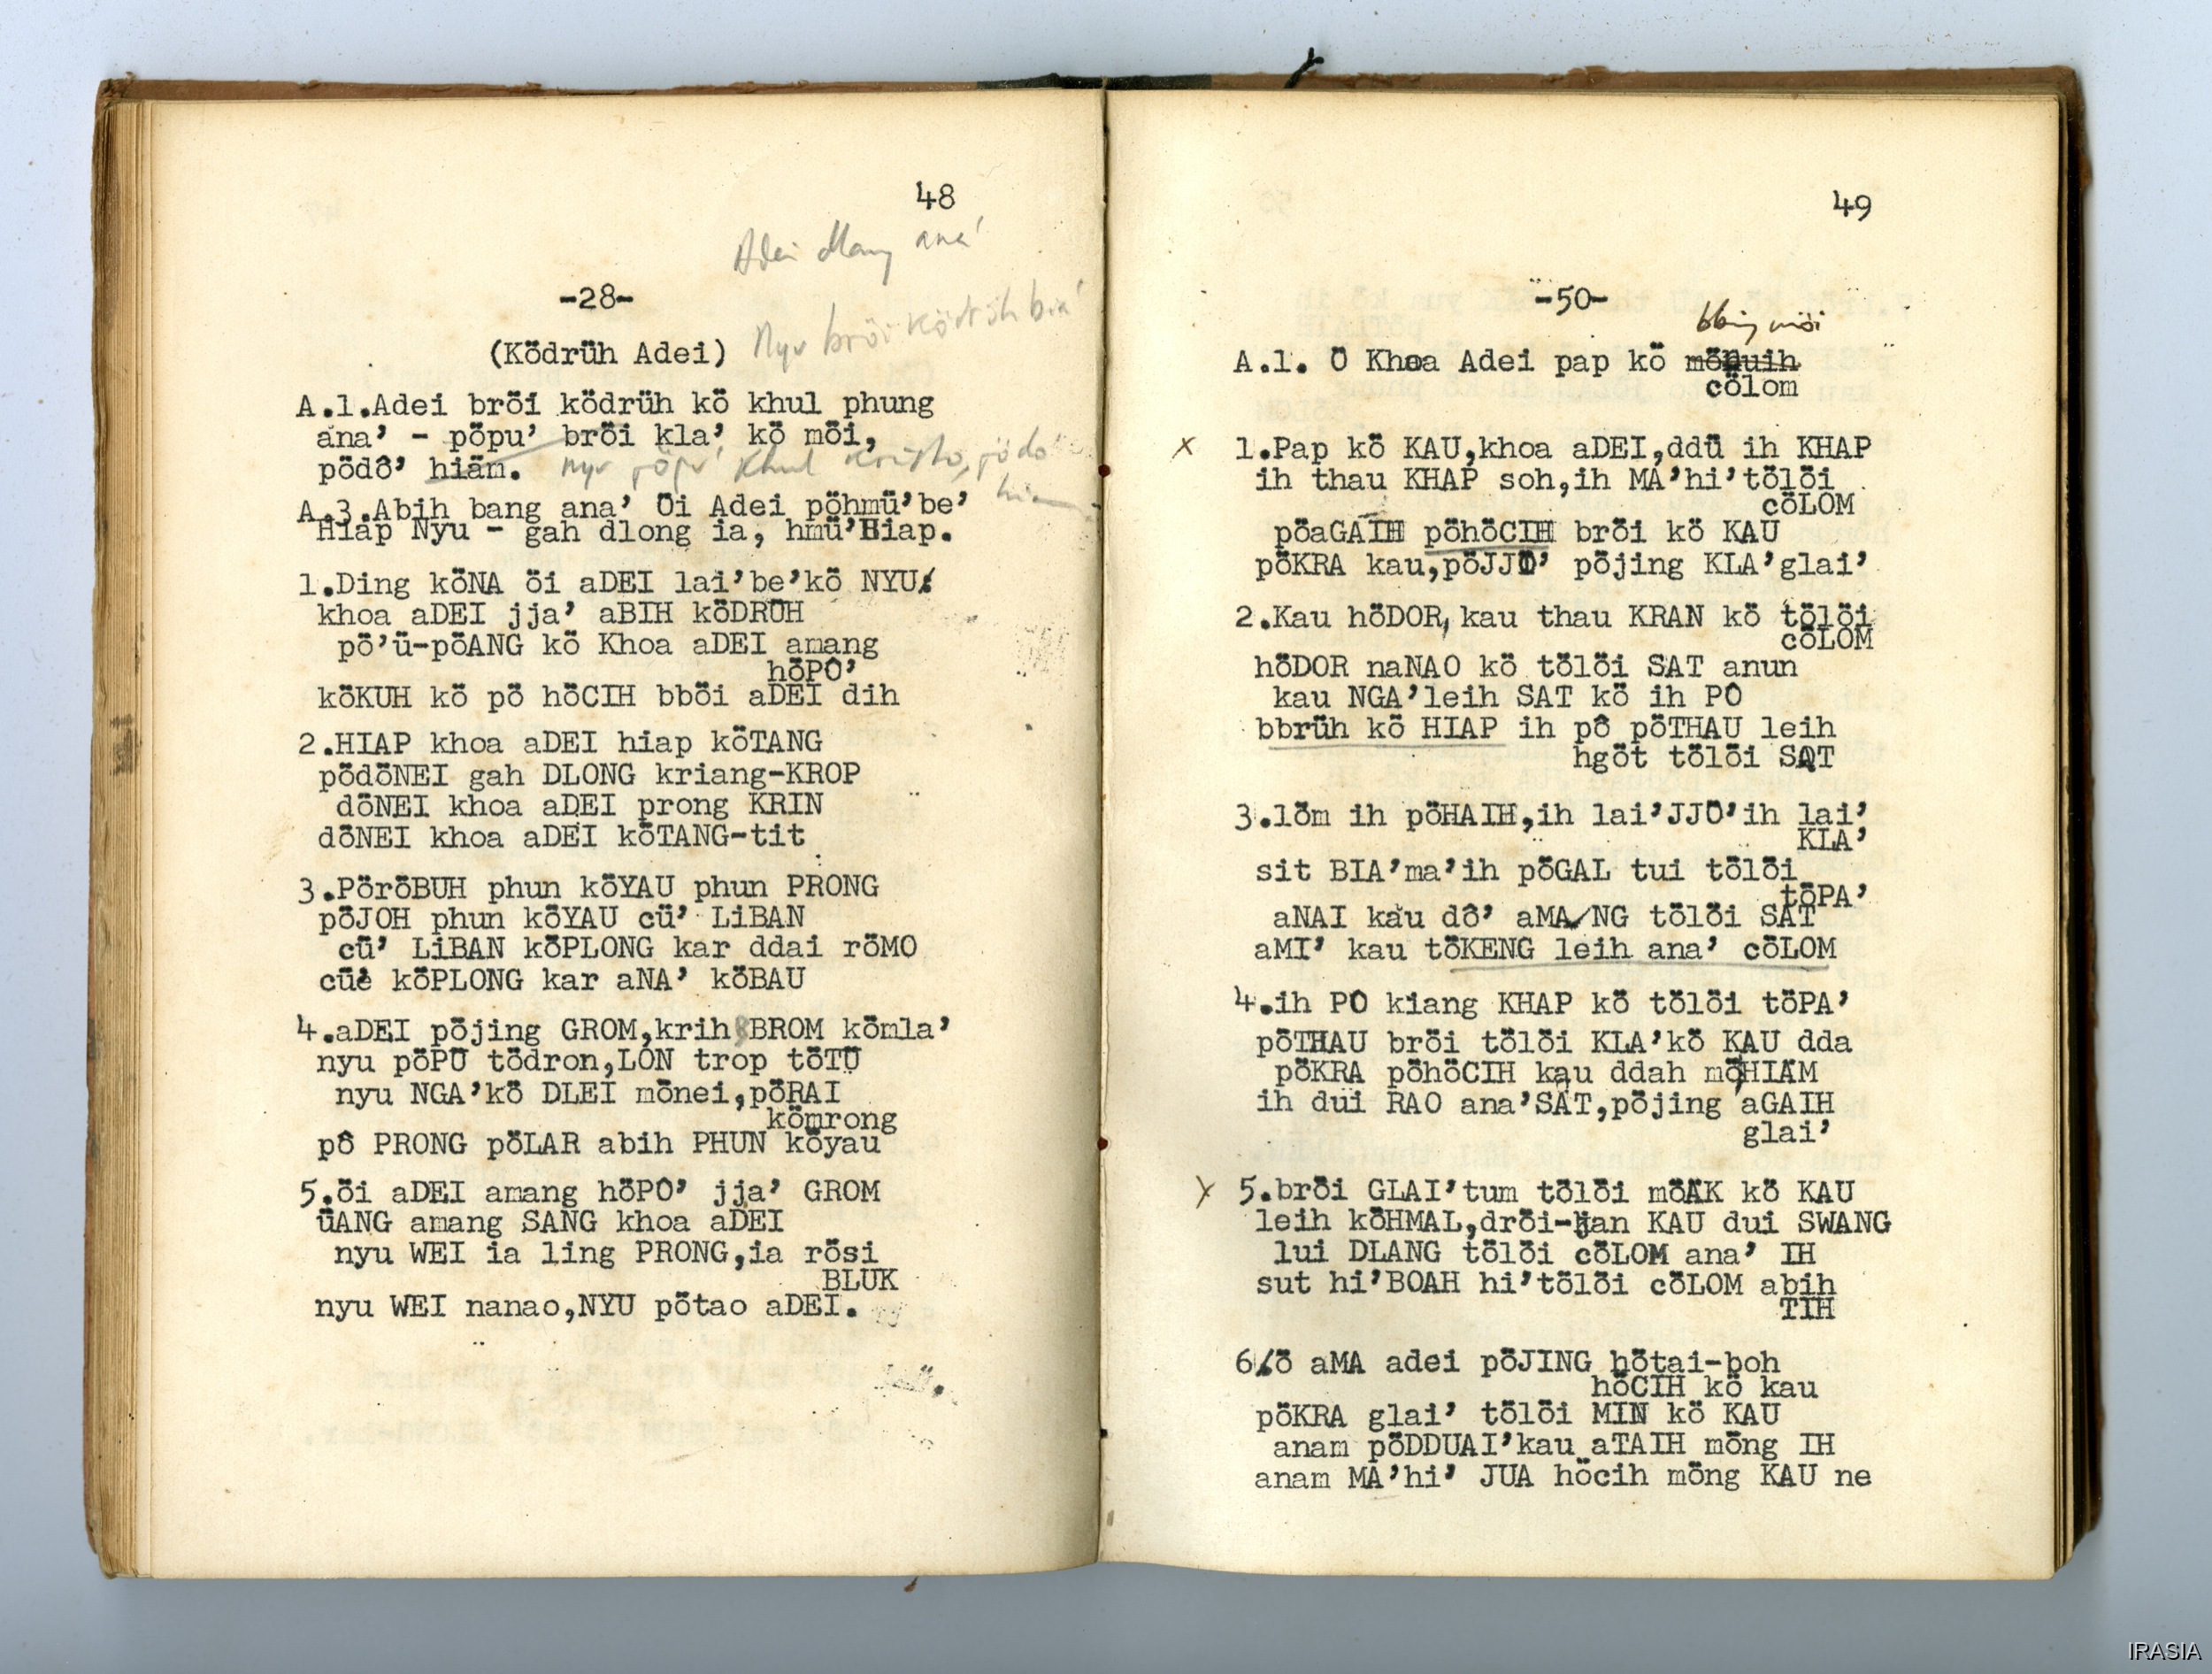 48
Adei dlang ana'
-28-
(Ködrüh Adei)
Nyu bröi ködrüh bia'
A.1.Adei bröi ködrüh kö khul phung
ana’ - pöpu’ bröi kla’ kö möi,
pödô’ hiäm.
nyu pöpu' Khul Kristo, pödo'
hiam
A.3.Abih bang ana’ Öi Adei pöhmü’be’
Hiap Nyu - gah dlong ia, hmü’Hiap.
1.Ding köNA öi aDEI lai’be’kö NYU
khoa aDEI jja’ aBIH köDRÜH
pö’ü-pöANG kö Khoa aDEI amang
höPÔ’
köKUH kö pö höCIH bböi aDEI dih
2.HIAP khoa aDEI hiap köTANG
pödöNEI gah DLONG kriang-KROP
döNEI khoa aDEI prong KRIN
döNEI khoa aDEI köTANG-tit
3.PöröBUH phun köYAU phun PRONG
pöJOH phun köYAU cü’ LiBAN
cü’ LiBAN köPLONG kar ddai röMO
cü’ köPLONG kar aNA’ köBAU
4.aDEI pöjing GROM,krih BROM kömla’
nyu pöPÜ tödron,LÖN trop töTÜ
nyu NGA’kö DLEI mönei,pöRAI
kömrong
pô PRONG pöLAR abih PHUN köyau
5.öi aDEI amang höPÔ’ jja’ GROM
üANG amang SANG khoa aDEI
nyu WEI ia ling PRONG,ia rösi
BLUK
nyu WEI nanao,NYU pötao aDEI.
49
-50-
bbing möi
A.1. Ö Khoa Adei pap kö mönuih
cölom
x
1.Pap kö KAU,khoa aDEI,ddü ih KHAP
ih thau KHAP soh,ih MA’hi’tölöi
cöLOM
pöaGAIH pöhöCIH bröi kö KAU
pöKRA kau,pöJJÖ’ pöjing KLA’glai’
2.Kau höDOR, kau thau KRAN kö tölöi
cöLOM
höDOR naNAO kö tölöi SAT anun
kau NGA’leih SAT kö ih PÔ
bbrüh kö HIAP ih pô pöTHAU leih
hgöt tölöi SAT
3.löm ih pöHAIH,ih lai’JJÖ’ih lai’
KLA’
sit BIA’ma’ih pöGAL tui tölöi
töPA’
aNAI kau dô’ aMA NG tölöi SAT
aMI’ kau töKENG leih ana’ cöLOM
4.ih PÔ kiang KHAP kö tölöi töPA’
pöTHAU bröi tölöi KLA’kö KAU dda
pöKRA pöhöCIH kau ddah möHIÄM
ih dui RAO ana’SAT,pöjing aGAIH
glai’
x
5.bröi GLAI’tum tölöi möAK kö KAU
leih köHMAL,dröi-jan KAU dui SWANG
lui DLANG tölöi cöLOM ana’ IH
sut hi’BOAH hi’tölöi cöLOM abih
TIH
6.ö aMA adei pöJING hötai-boh
höCIH kö kau
pöKRA glai’ tölöi MIN kö KAU
anam pöDDUAI’kau aTAIH möng IH
anam MA’hi’ JUA höcih möng KAU ne
IRASIA